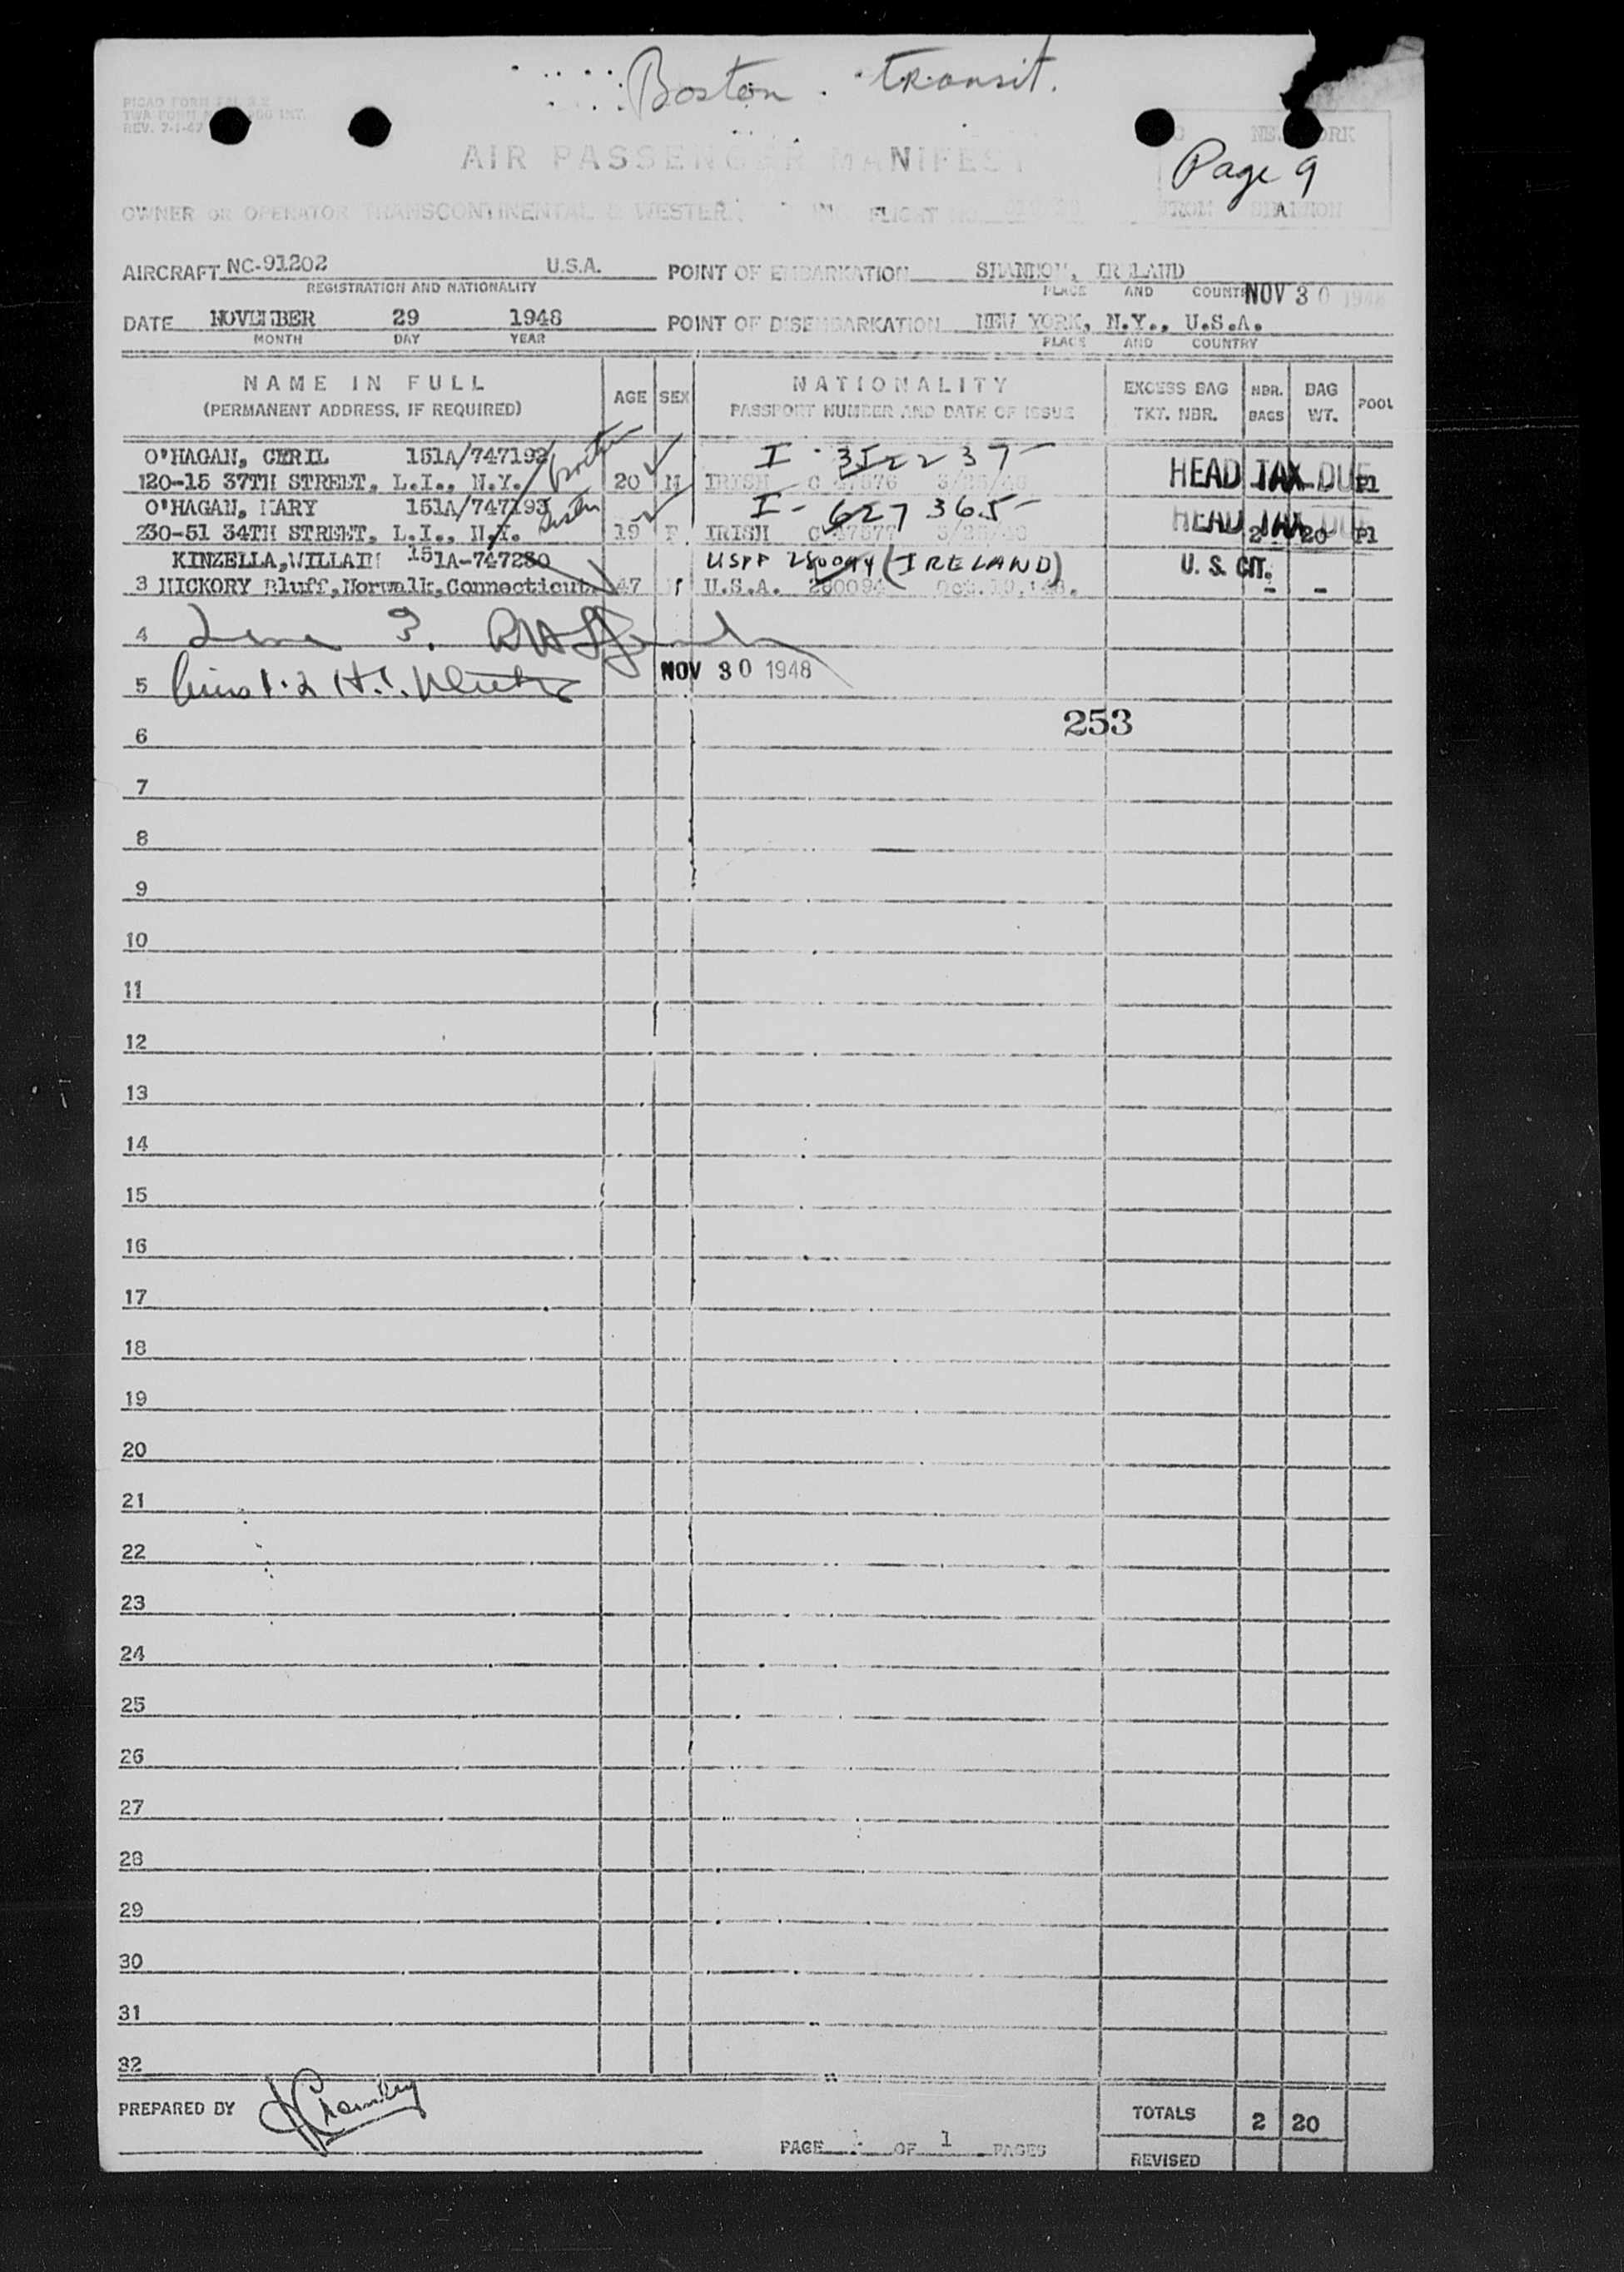 Boston transit.
REV. 7-1-47
AIR PASSENGER MANIFEST
Page 9
OWNER OR OPERATOR TRANSCONTINENTAL & WESTERN FLIGHT NO. FROM SHANNON
AIRCRAFT NC-91202 U.S.A. POINT OF EMBARKATION SHANNON, IRELAND
REGISTRATION AND NATIONALITY PLACE AND COUNTRY NOV 30 1948
DATE NOVEMBER 29 1948 POINT OF DISEMBARKATION NEW YORK, N.Y., U.S.A.
MONTH DAY YEAR PLACE AND COUNTRY
NAME IN FULL AGE SEX NATIONALITY EXCESS BAG NBR. BAG POOL
(PERMANENT ADDRESS, IF REQUIRED) PASSPORT NUMBER AND DATE OF ISSUE TKT. NBR. BAGS WT.
O'HAGAN, CERIL 151A/747192 I-3522375 HEAD TAX DUE
120-15 37TH STREET, L.I., N.Y. 20 M IRISH P1
O'HAGAN, MARY 151A/747193 Sister I-627365 HEAD TAX DUE
230-51 34TH STREET, L.I., N.Y. 19 F IRISH 2 20 P1
KINZELLA,WILLAIM 151A-747280 USPP 280094 (IRELAND) U. S. CIT.
3 HICKORY Bluff,Norwalk,Connecticut 47 M U.S.A. 280094 Oct.19,'48. - -
4
5 NOV 30 1948
253
6
7
8
9
10
11
12
13
14
15
16
17
18
19
20
21
22
23
24
25
26
27
28
29
30
31
32
PREPARED BY TOTALS 2 20
PAGE 1 OF 1 PAGES
REVISED